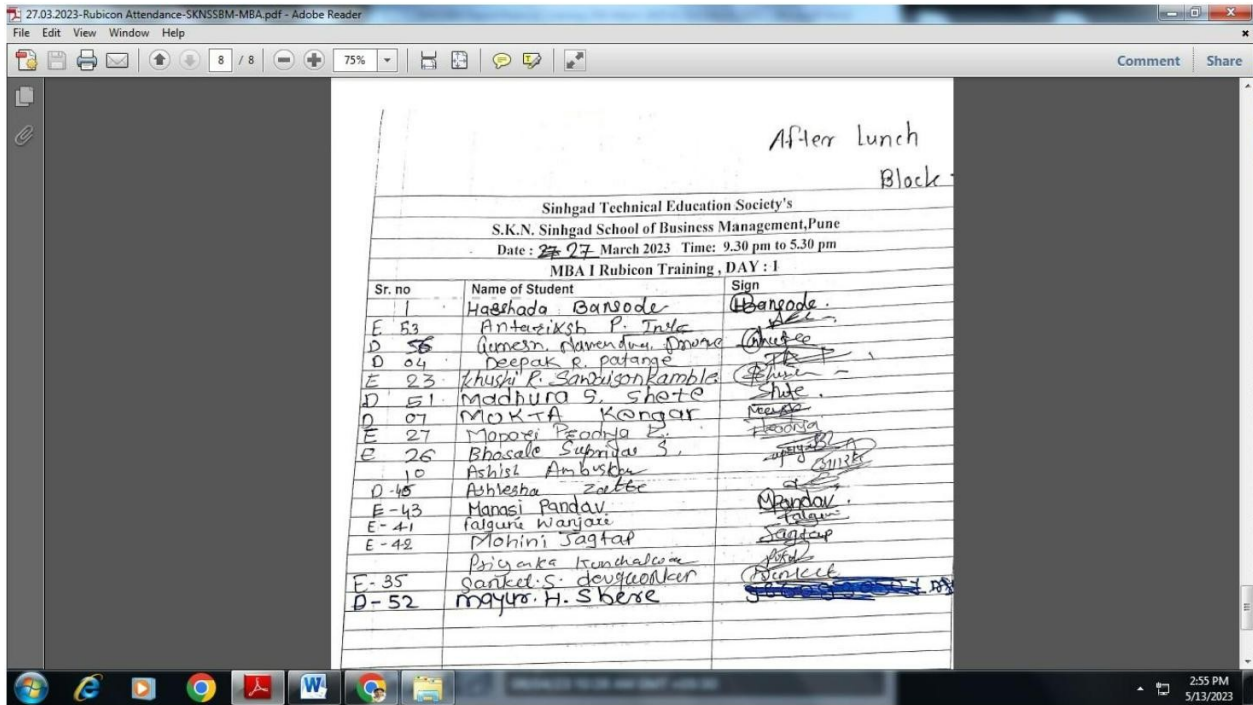 27.03.2023-Rubicon Attendance-SKNSSBM-MBA.pdf - Adobe Reader
File Edit View Window Help
8 / 8 75% Comment Share
After Lunch
Block
Sinhgad Technical Education Society's
S.K.N. Sinhgad School of Business Management,Pune
Date : 27 March 2023 Time: 9.30 pm to 5.30 pm
MBA I Rubicon Training , DAY : I
Sr. no Name of Student Sign
1 Harshada Bansode HBansode.
E 53 Antariksh P.
D 56
D 04 Deepak R. Patange
E 23 Khushi R.
D 51 Madhura S. Shete Shete.
D 07 MOKTA Kengar
E 27
E 26 Bhosale Supriya S.
10 Ashish Ambuskar
D-45 Ashlesha
E-43 Manasi Pandav MPandav.
E-41 Falguni Wanjari Falguni
E-42 Mohini Jagtap Jagtap
Priyanka
E-35 Sanket.S. Sanket
D-52 Mayur. H. Shere
2:55 PM
5/13/2023